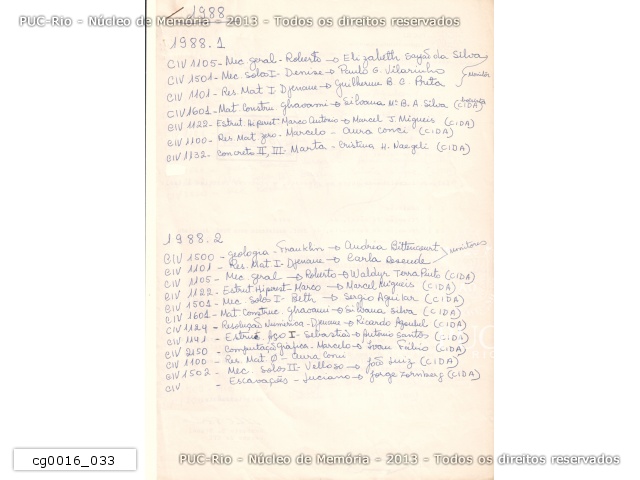 PUC-Rio - Núcleo de Memória - 2013 - Todos os direitos reservados
1988
1988.1
CIV 1105 - Mec geral - Roberto → Elizabeth Sayão da Silva
CIV 1501 - Mec. Solos I - Denise → Paulo G. Vilarinho
monitor
CIV 1101 - Res. Mat I Djenane → Guilherme B. C. Prata
CIV 1601 - Mat Constru Ghavami → Silvana Mª B. A. Silva (CIDA)
CIV 1122 - Estrut. Hiperest Marco Antonio → Marcel J. Migueis (CIDA)
CIV 1100 - Res. Mat. zero - Marcelo - Aura Conci (CIDA)
CIV 1132 - Concreto II, III - Marta - Cristina H. Naegeli (CIDA)
1988.2
CIV 1500 - geologia - Franklin → Andrea Bittencourt
monitores
CIV 1101 - Res. Mat I - Djenane → Carla Resende
CIV 1105 - Mec geral → Roberto → Waldyr Terra Pinto (CIDA)
CIV 1122 - Estrut Hiperest - Marco → Marcel Migueis (CIDA)
CIV 1501 - Mec. Solos I - Beth → Sergio Aguiar (CIDA)
CIV 1601 - Mat Construc. Ghavami → Silvana Silva (CIDA)
CIV 1124 - Resolução Numérica - Djenane → Ricardo (CIDA)
CIV 1141 - Estrut. Aço I - Sebastião → Antonio Santos (CIDA)
CIV 2150 - Computação gráfica - Marcelo → Ivan Fábio (CIDA)
CIV 1100 - Res. Mat 0 - Aura Conci
CIV 1502 - Mec. Solos II - Velloso → João Luiz (CIDA)
CIV - Escavações - Luciano → Jorge Zornberg (CIDA)
cg0016_033
PUC-Rio - Núcleo de Memória - 2013 - Todos os direitos reservados